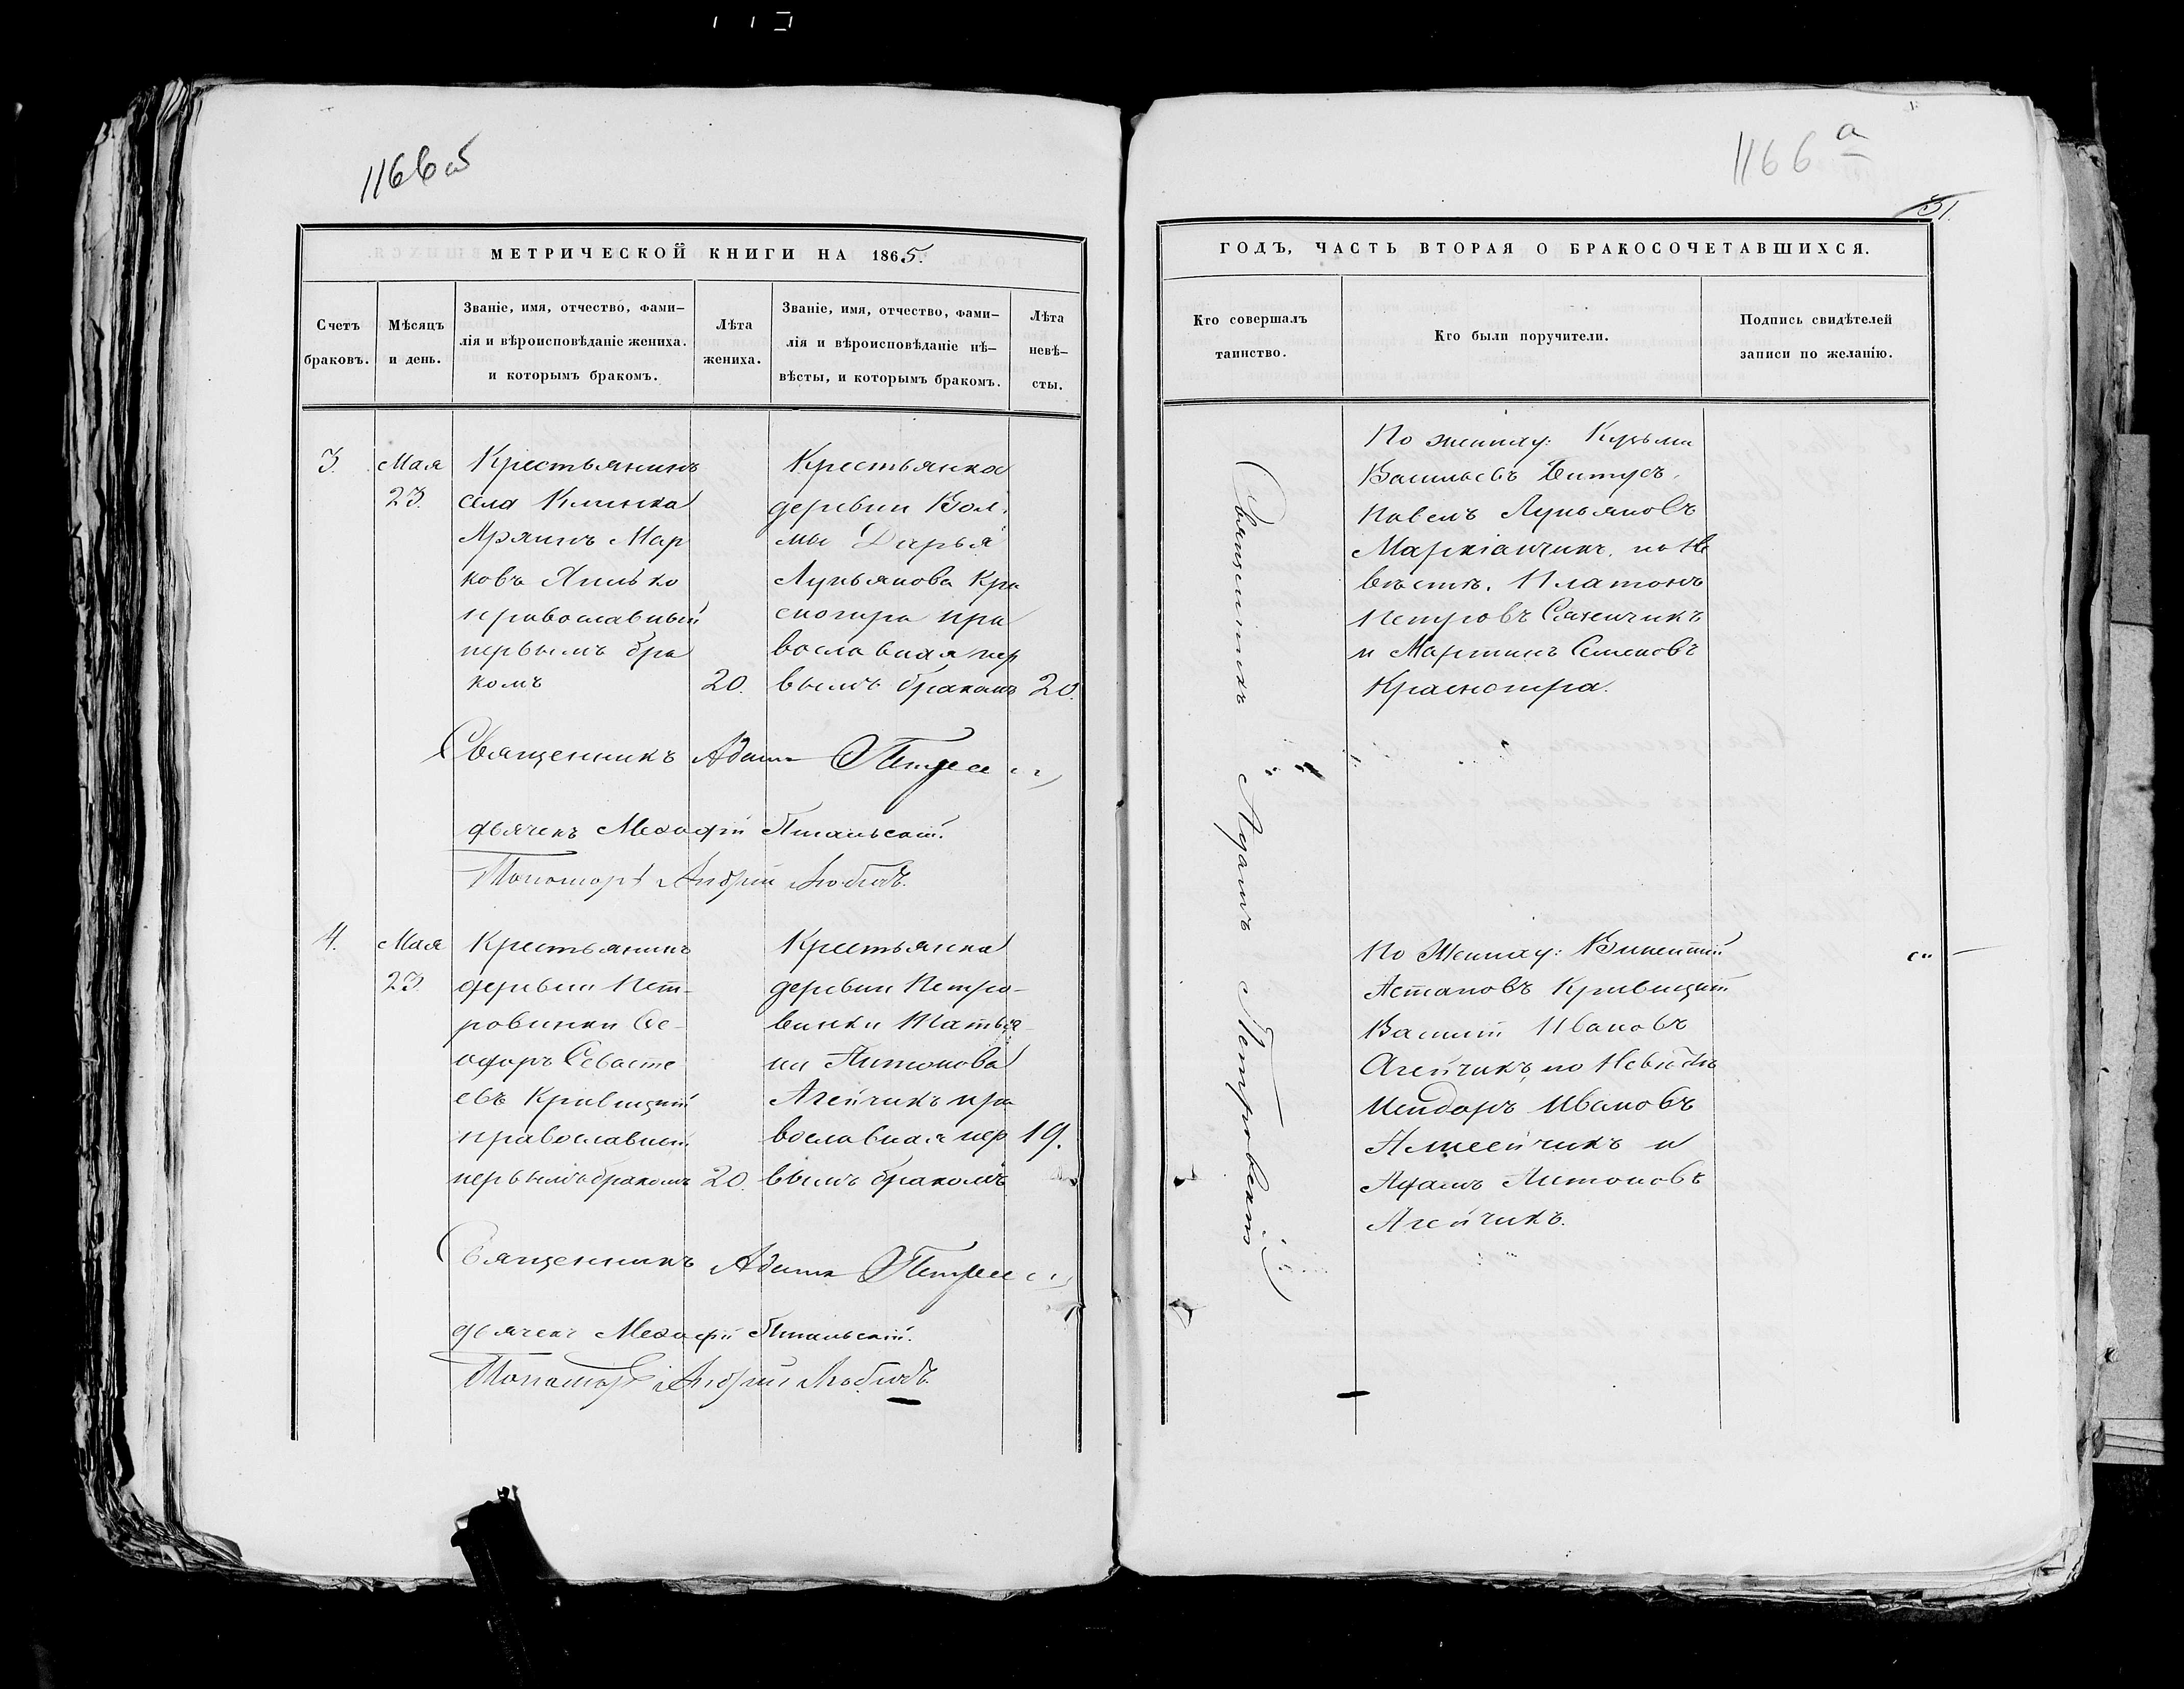 1166б
МЕТРИЧЕСКОЙ КНИГИ НА 1865.
Счетъ браковъ.
Мѣсяцъ и день.
Званіе, имя, отчество, фами-
лія и вѣроисповѣданіе жениха.
и которымъ бракомъ.
Лѣта
жениха.
Званіе, имя, отчество, фами-
лія и вѣроисповѣданіе нѣ-
вѣсты, и которымъ бракомъ.
Лѣта
невѣ-
сты.
3.
Мая
23.
Крестьянинъ
села Клинка
Мар
ковъ
православный
первымъ бра
комъ
20.
Крестьянка
деревни Вол
мы Дарья
Лукьянова Кра
сногира пра
вославная пер
вымъ бракомъ
20.
Священникъ Адамъ
дьячекъ
Пономарь Андрей
4.
Мая
23.
Крестьянинъ
деревни Пет-
ровинки Ѳе-
одоръ Севасте
евъ Кривицкій
православный
первымъ бракомъ
20.
Крестьянка
деревни Петро-
винки Татья-
на Антонова
Агейчикъ пра
вославная пер
вымъ бракомъ
19.
Священникъ Адамъ
дьячекъ
Пономарь Андрей
1166 а
51.
ГОДЪ, ЧАСТЬ ВТОРАЯ О БРАКОСОЧЕТАВШИХСЯ.
Кто совершалъ
таинство.
Кто были поручители.
Подпись свидѣтелей
записи по желанію.
Священникъ Адамъ Петровскій
По жениху: Кузьма
Васильевъ
Павелъ Лукьяновъ
по Не
вѣстѣ. Платонъ
Петровъ
и Мартинъ Семеновъ
Красногира.
По Жениху: Викентій
Кривицкій
Василій Ивановъ
Агейчикъ, по Невѣстѣ
Исидоръ Ивановъ
и
Адамъ Антоновъ
Агейчикъ.